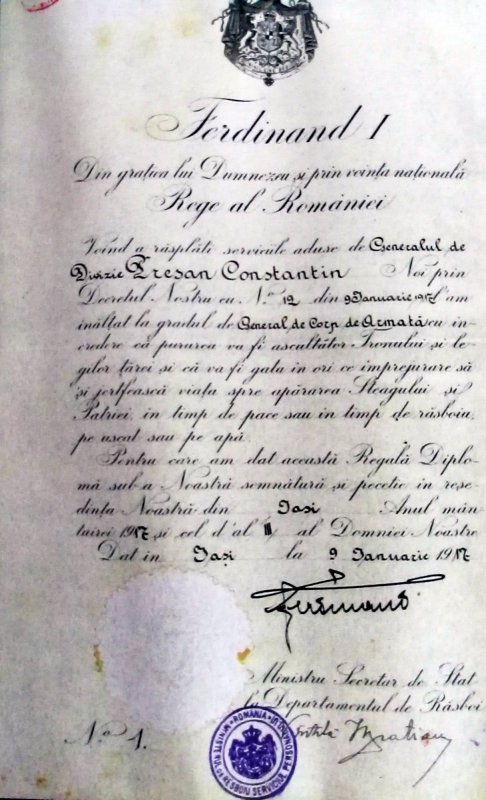 Ferdinand I
Din grația lui Dumnezeu și prin voința națională
Rege al României
Voind a răsplăti serviciile aduse de Generalul de
Divizie Presan Constantin Noi prin
Decretul Nostru cu No. 12 din 9 Ianuarie 1917 l'am
înălțat la gradul de General de Corp de Armată cu în-
credere că pururea va fi ascultător Tronului și le-
gilor țărei și că va fi gata în ori ce împrejurare să
și jertfească viața spre apărarea Steagului și
Patriei, in timp de pace sau in timp de răsboiu,
pe uscat sau pe apă.
Pentru care am dat această Regală Diplo-
mă sub a Noastră semnătură și pecetie in rese-
dința Noastră din Iasi Anul mân
tuirei 1917 și cel d'al III al Domniei Noastre
Dat in Iași la 9 Ianuarie 1917
Ferdinand
Ministru Secretar de Stat
la Departamentul de Răsboi
No. 1.
ROMANIA